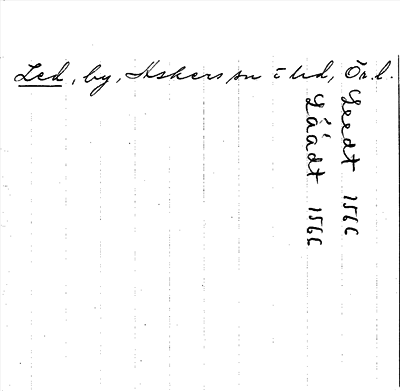 Led, by, Askers sn o hd, Ör. l.
Leedt 1566
Låådt 1566